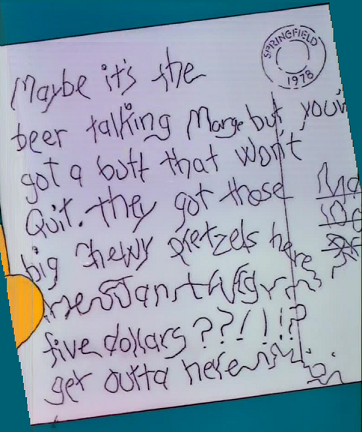 SPRINGFIELD
1978
Maybe it's the
beer talking Marge but you'v
got a butt that won't
Quit. they got those
big chewy pretzels here
five dollars??!!!?
get outta here